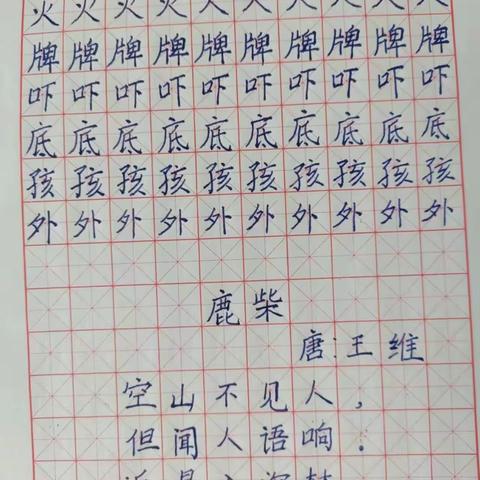 牌牌牌牌牌牌牌牌牌牌
吓吓吓吓吓吓吓吓吓吓
底底底底底底底底底底
孩孩孩孩孩孩孩孩孩孩
外外外外外外外外外外
鹿柴
唐:王维
空山不见人，
但闻人语响.